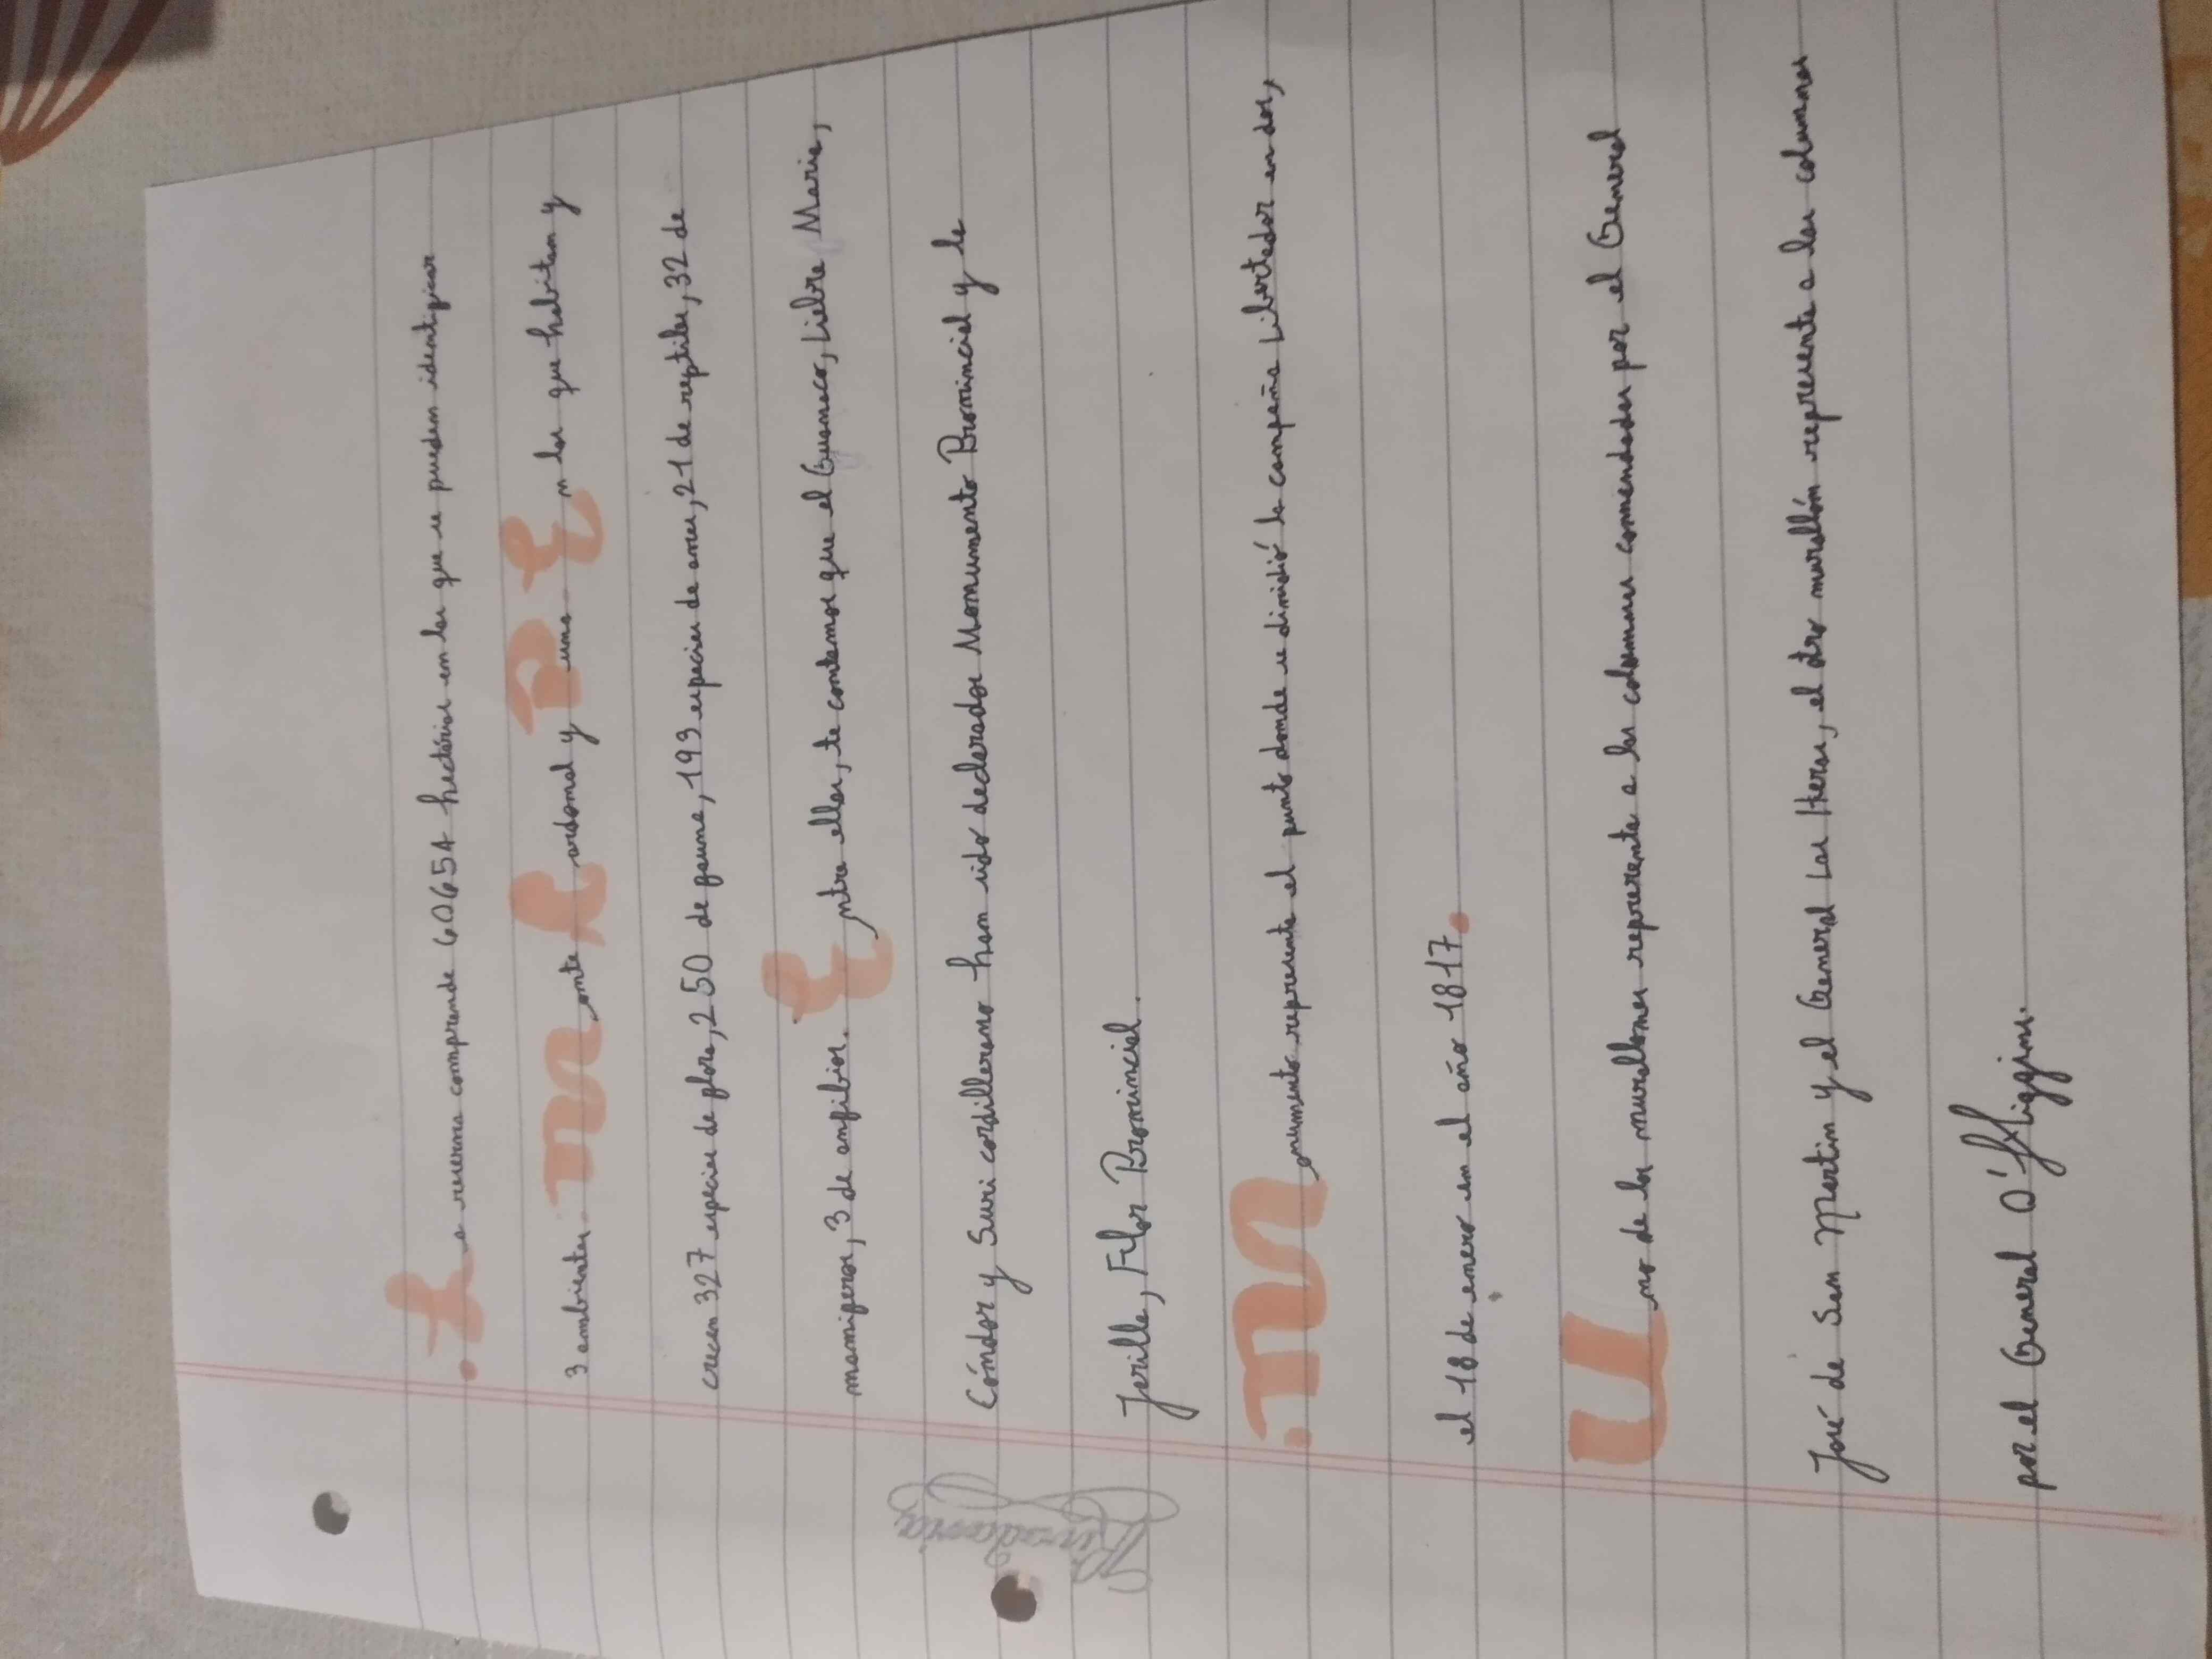 .La reserva comprende 60654 hectárias en las que se pueden identificar
3 ambientes. Monte, Cardonal y Puna. En los que habitan y
crecen 327 especies de flora, 250 de fauna, 193 especies de aves, 21 de reptiles, 32 de
mamiferos, 3 de anfibios. Entre ellas, te contamos que el Guanaco, Liebre Maria,
Cóndor y Suri cordillerano han sido declarados Monumento Provincial y la
Jarilla, Flor Provincial.
.Monumento representa el punto donde se dividió la campaña Libertador en dos,
el 18 de enero en el año 1817.
Uno de los murallones representa a las columnas comandadas por el General
José de San Martin y el General Las Heras, el otro murallón representa a las columnas
por el General O'Higgins.
Rivadavia